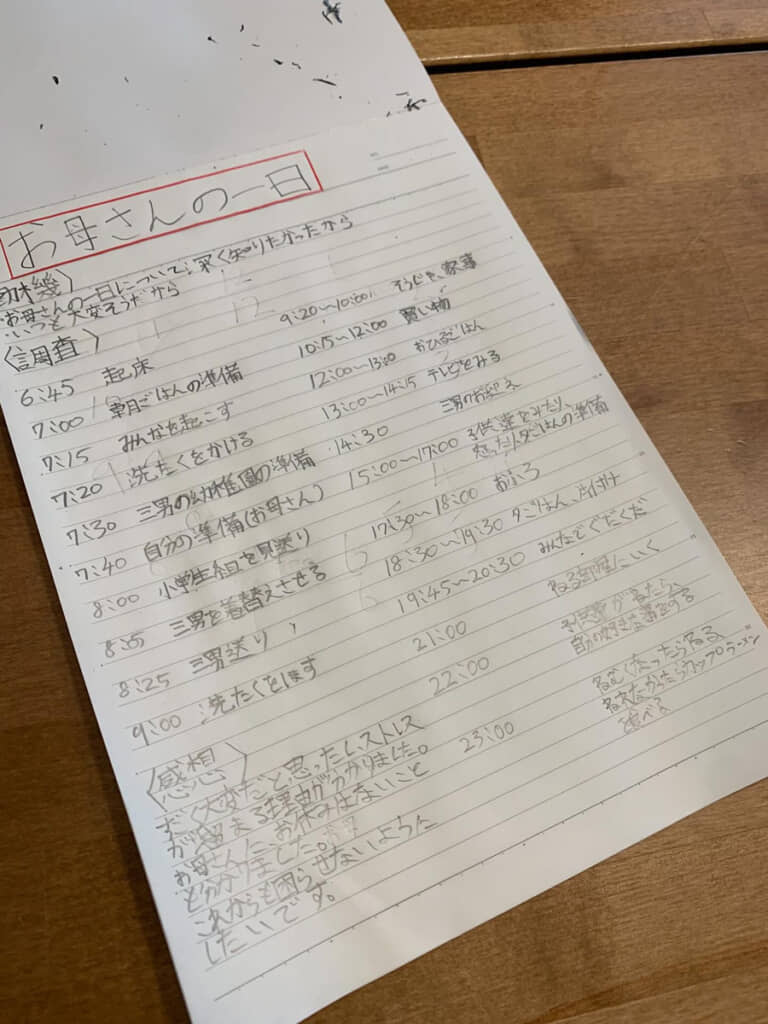 お母さんの一日
動機〉
お母さんの一日について深く知りたかったから
いつも大変そうだから
〈調査〉
6:45 起床
7:00 朝ごはんの準備
7:15 みんなを起こす
7:20 洗たくをかける
7:30 三男の幼稚園の準備
7:40 自分の準備(お母さん)
8:00 小学生組を見送り
8:05 三男を着替えさせる
8:25 三男送り
9:00 洗たくをほす
9:20〜10:00 そうじや、家事
10:15〜12:00 買い物
12:00〜13:00 おひるごはん
13:00〜14:15 テレビをみる
14:30 三男のお迎え
15:00〜17:00 子供達をみたり、
怒ったり、夕ごはんの準備
17:30〜18:00 おふろ
18:30〜19:30 夕ごはん、片付け
19:45〜20:30 みんなでぐだぐだ
21:00 ねる部屋にいく
22:00 子供達が寝たら、
自分の好きな事をする
23:00 ねむくなったらねる
ねれなかったらカップラーメン
を食べる
〈感想〉
すごく大変だと思ったし、ストレス
が留まる理由が分かりました。
お母さんにお休みはないこと
が分かりました。
これからも困らせないように
したいです。